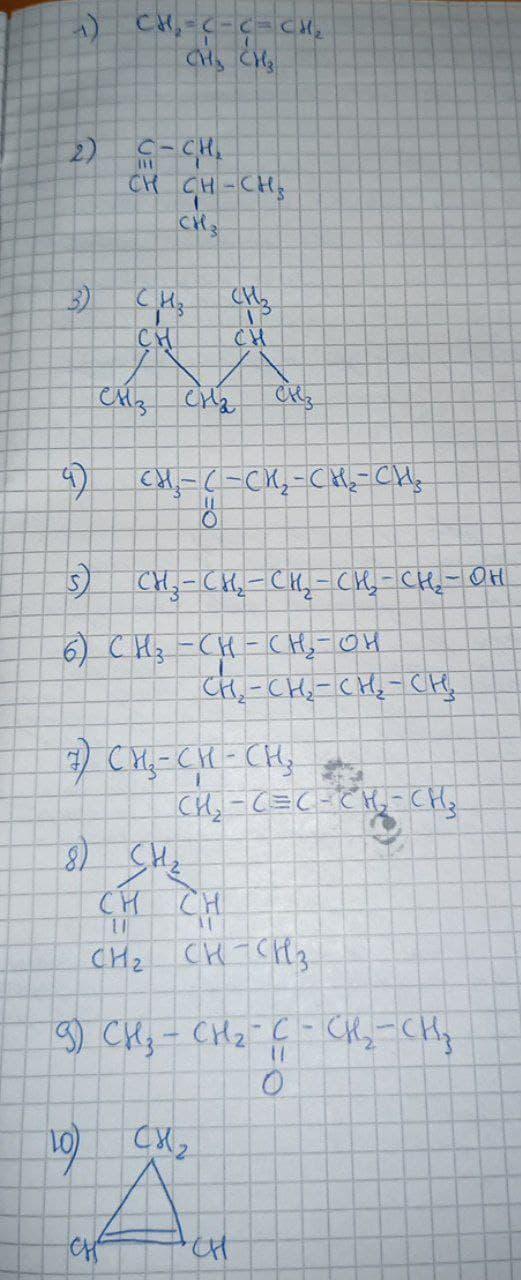 1) CH₂=C-C=CH₂
CH₃ CH₃
2) C-CH₂
CH CH-CH₃
CH₃
3) CH₃ CH₃
CH CH
CH₃ CH₂ CH₃
4) CH₃-C-CH₂-CH₂-CH₃
O
5) CH₃-CH₂-CH₂-CH₂-CH₂-OH
6) CH₃-CH-CH₂-OH
CH₂-CH₂-CH₂-CH₃
7) CH₃-CH-CH₃
CH₂-C≡C-CH₂-CH₃
8) CH₂
CH CH
CH₂ CH-CH₃
9) CH₃-CH₂-C-CH₂-CH₃
O
10) CH₂
CH CH